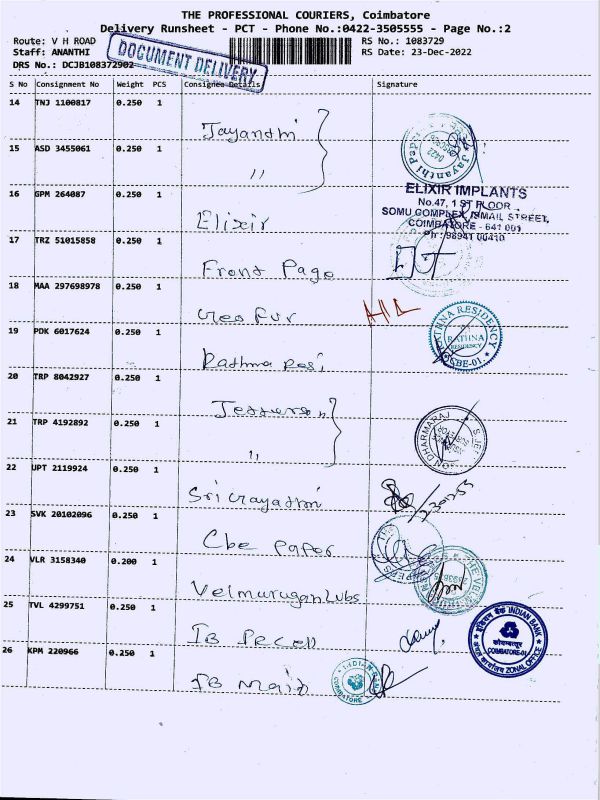 THE PROFESSIONAL COURIERS, Coimbatore
Delivery Runsheet - PCT - Phone No.:0422-3505555 - Page No.:2
Route: V H ROAD RS No.: 1083729
Staff: ANANTHI RS Date: 23-Dec-2022
DRS No.: DCJB108372902
DOCUMENT DELIVERY
S No Consignment No Weight PCS Consignee Details Signature
14 TNJ 1100817 0.250 1
Jayanthi
15 ASD 3455061 0.250 1
"
16 GPM 264087 0.250 1
Elixir
ELIXIR IMPLANTS
No.47, 1 ST FLOOR
SOMU COMPLEX, ISMAIL STREET,
COIMBATORE - 641 001
Ph : 98941 00410
17 TRZ 51015858 0.250 1
Front Page
18 MAA 297698978 0.250 1
19 PDK 6017624 0.250 1
RATHNA RESIDENCY
RATHNA
RESIDENCY
CBE-01
20 TRP 8042927 0.250 1
21 TRP 4192892 0.250 1
"
22 UPT 2119924 0.250 1
23 SVK 20102096 0.250 1
Cbe Paper
24 VLR 3158340 0.200 1
Velmurugan Lubs
25 TVL 4299751 0.250 1
INDIAN BANK
कोयम्बत्तूर
COIMBATORE-01
ZONAL OFFICE
26 KPM 220966 0.250 1
IB Main